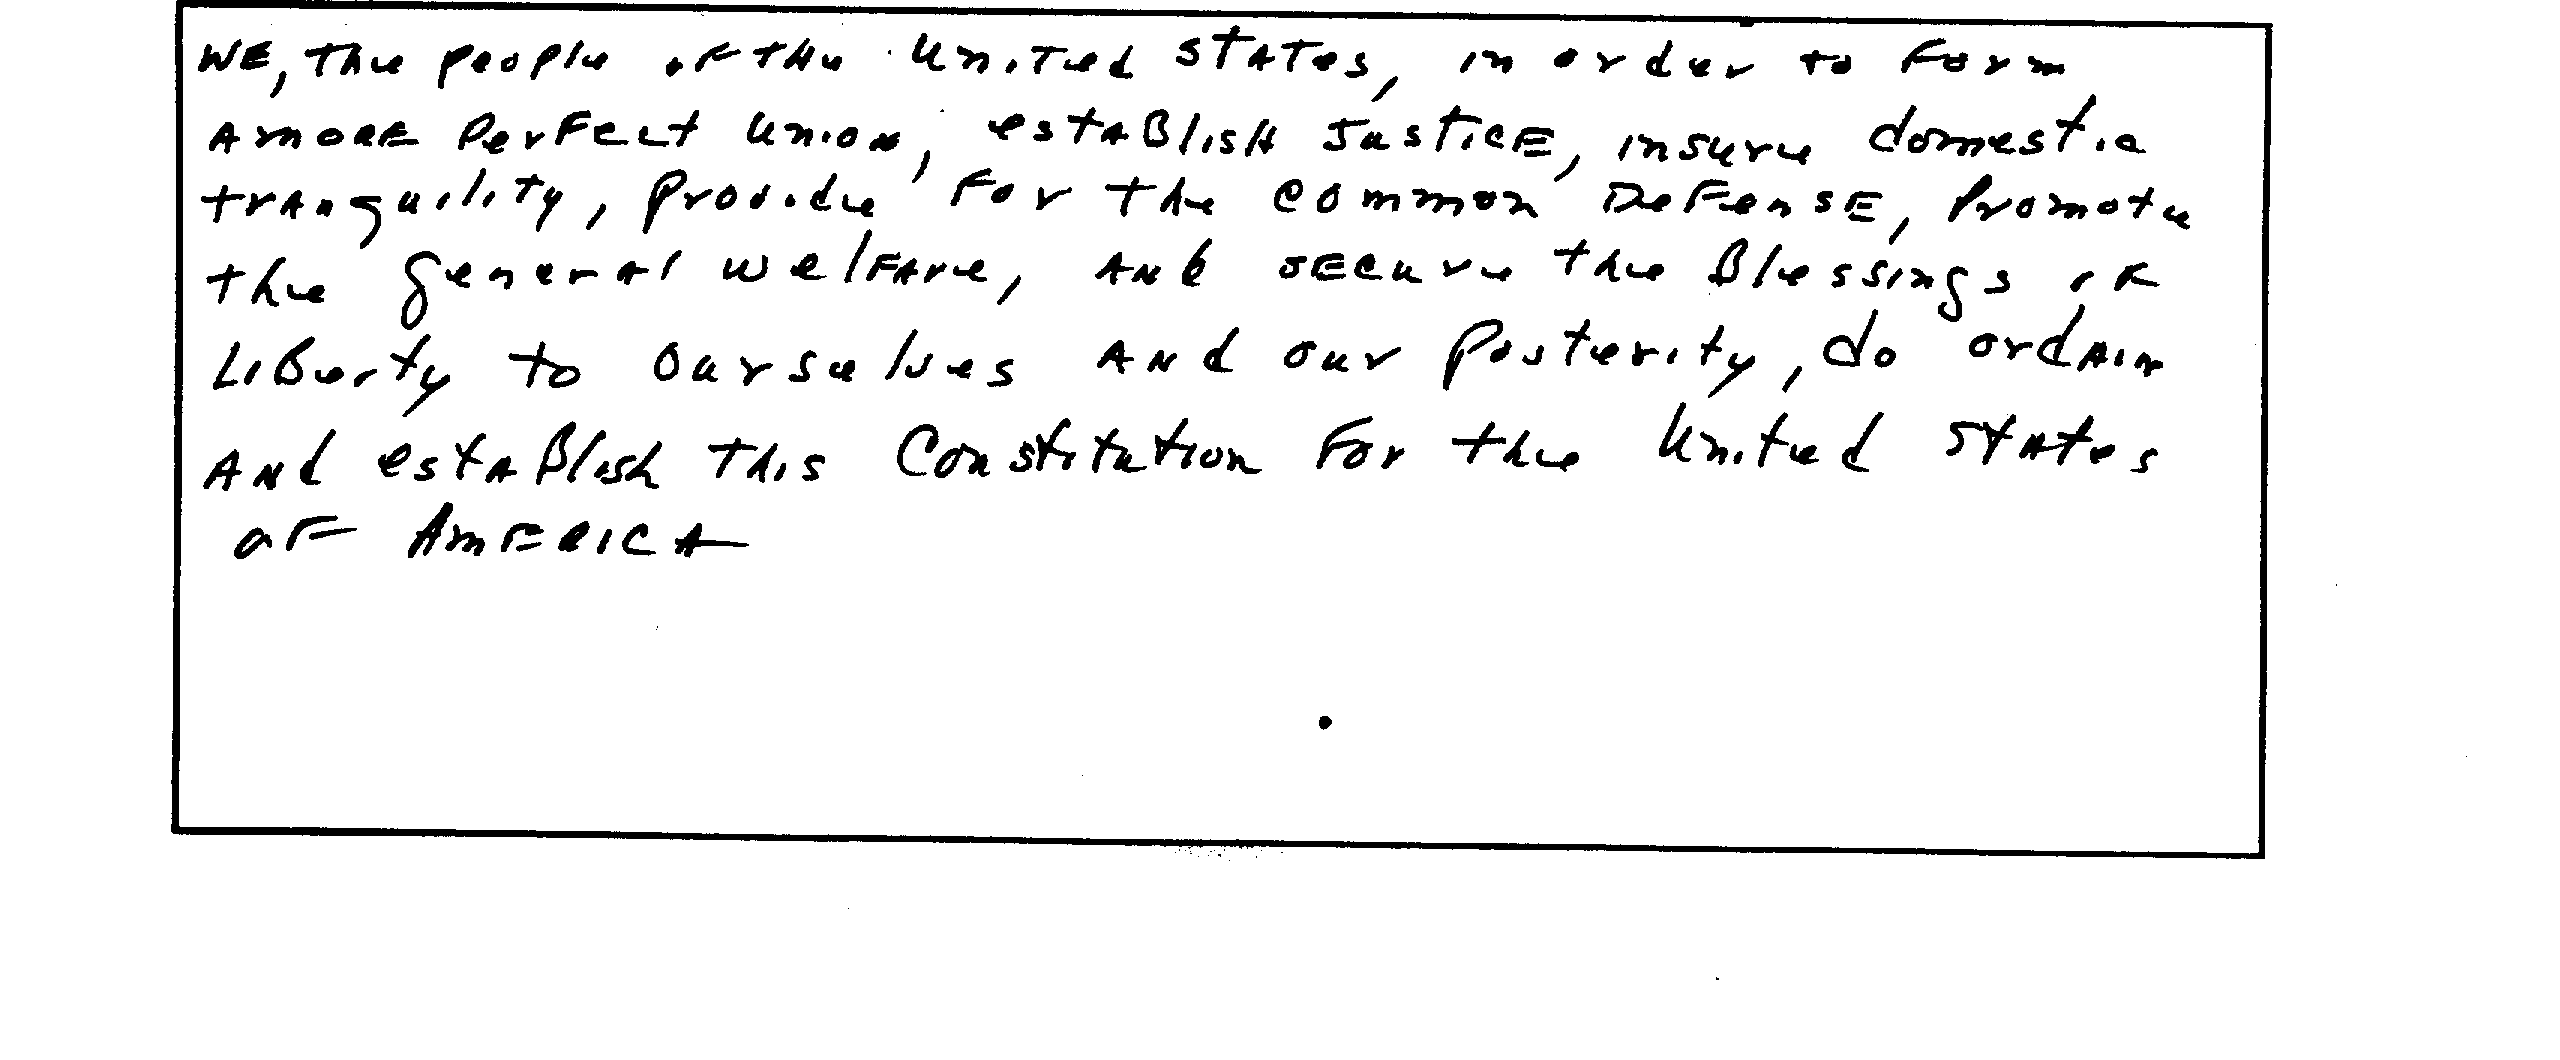 WE, The people of the United STATes, in order to Form
A moRE PerFect Union, estABlisH JusticE, insure domestic
trAnquility, Provide For the common DeFensE, Promote
the general welFAre, And sEcure the Blessings of
LiBerty to ourselves And our Posterity, do ordAin
And estABlish this Constitution For the United StAtes
oF AmERICA